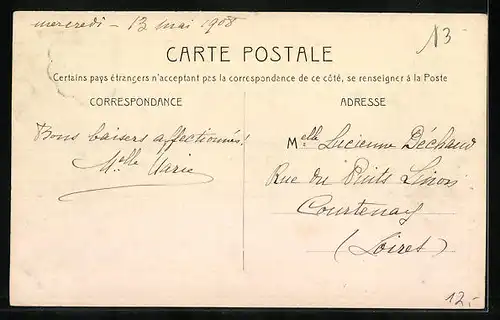 mercredi - 13 mai 1908
13-
CARTE POSTALE
Certains pays étrangers n'acceptant pas la correspondance de ce côté, se renseigner à la Poste
CORRESPONDANCE
Bons baisers affectionnés!
Melle Marie
ADRESSE
Melle Lucienne Déchaud
Rue du Puits
Courtenay
(Loiret)
12.-